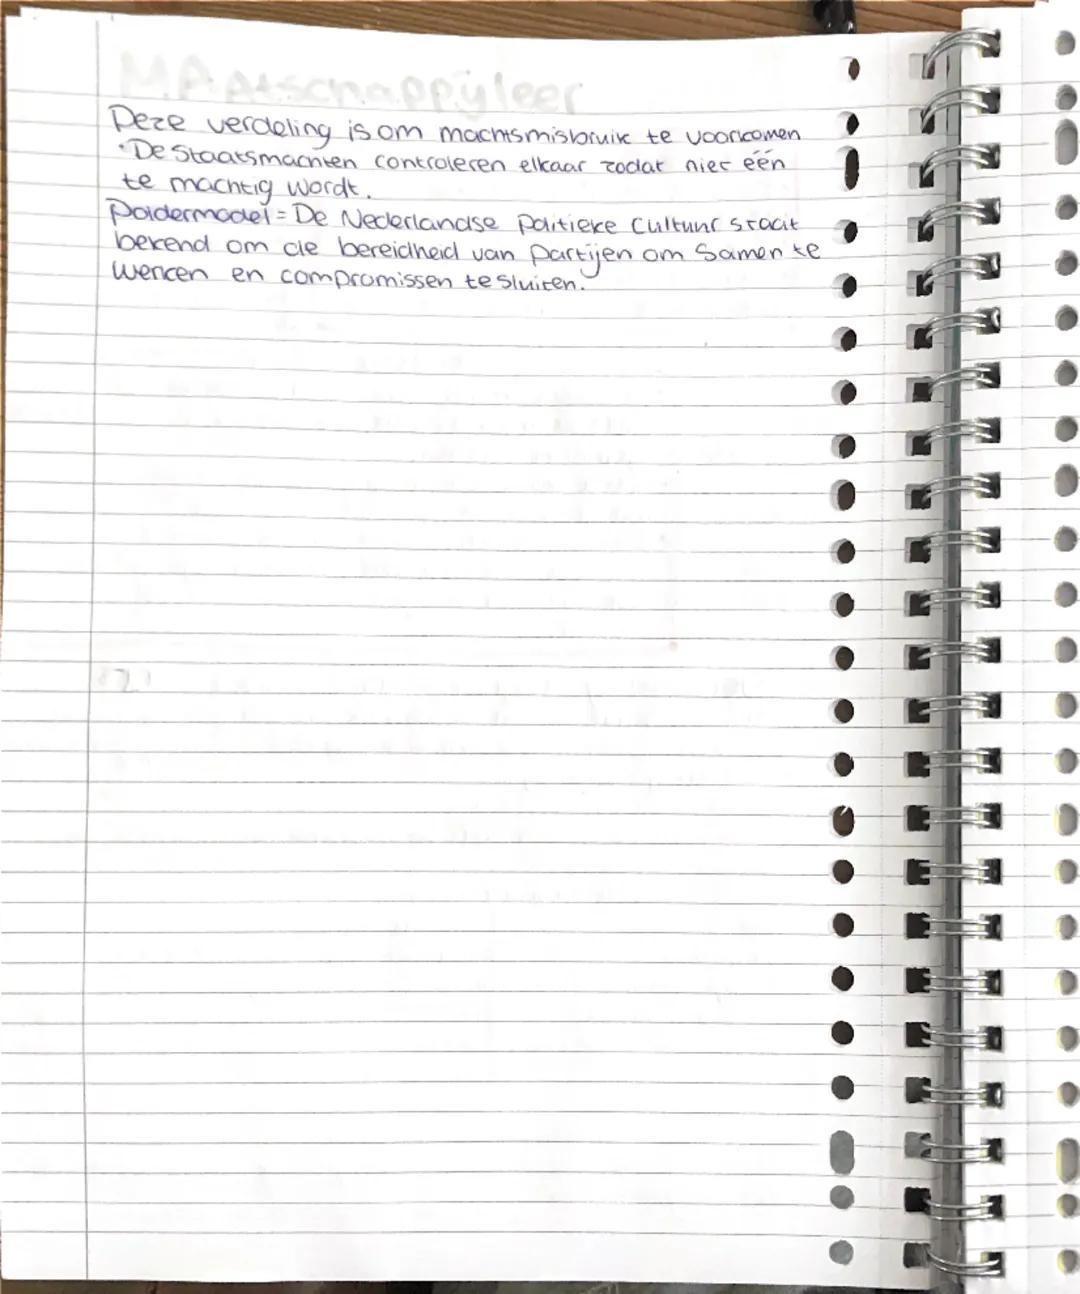 MAAtschappijleer
Deze verdeling is om machtsmisbruik te voorkomen
·De Staatsmachten controleren elkaar zodat niet één
te machtig wordt.
Poldermodel = De Nederlandse Politieke Cultuur staat
bekend om de bereidheid van Partijen om Samen te
werken en compromissen te sluiten.